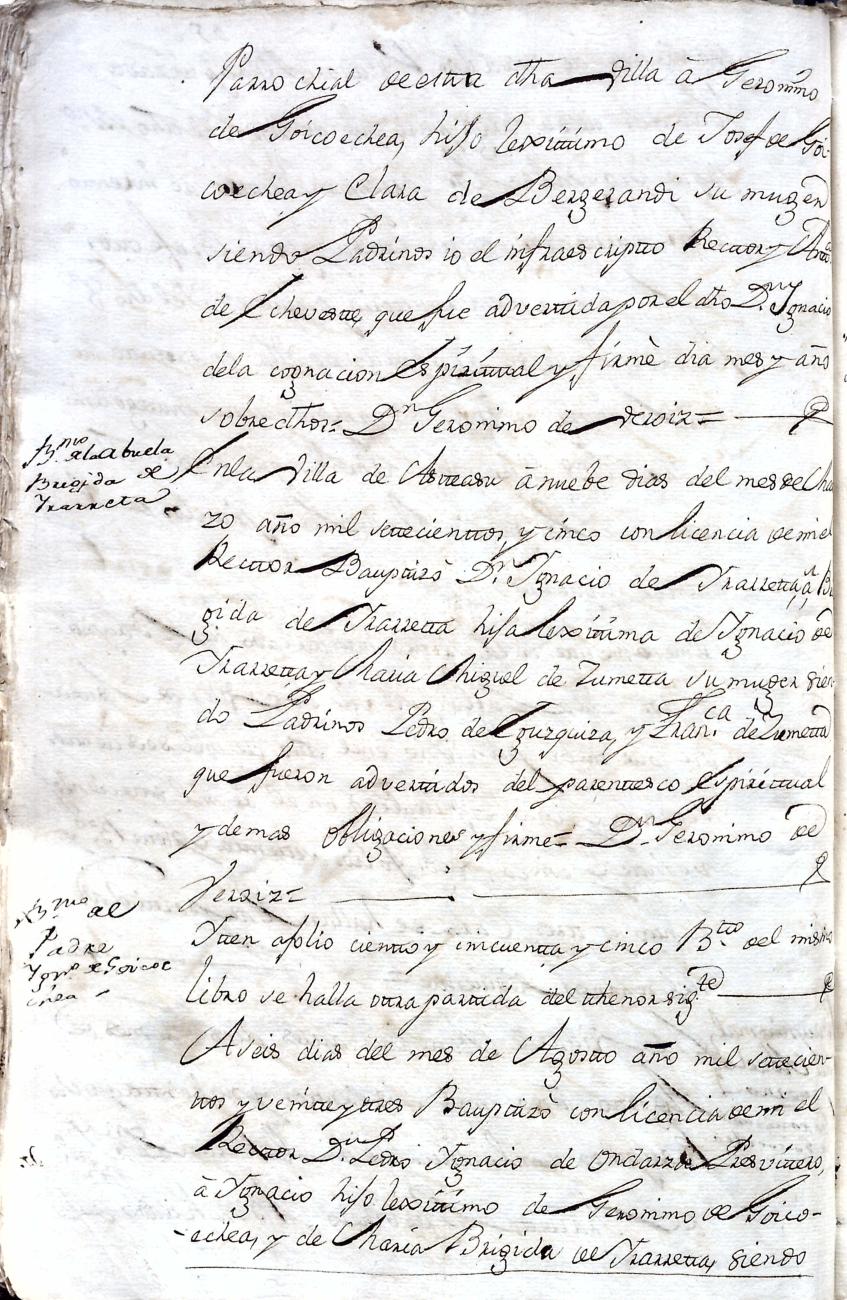 Parrochial de esta dha villa â Geronimo
de Goicoechea, hijo lexittimo de Josef de Goi-
coechea y Clara de Berrerandi su muger
siendo Padrinos io el infraescriptto Recttor y
de Echeveste, que fue adverttida por el dho Dn Ygnacio
dela cognacion Espirittual y firmè dia mes y año
sobredhos= Dn Geronimo de Veroiz=
Bmo de la Abuela
Brigida de
Yrarreta
Enla Villa de Astteasu â nuebe dias del mes de Ma
zo año mil settecienttos, y cinco con licencia de mi el
Recttor Bauptizò Dn Ygnacio de Yrarretta, â Bri
gida de Yrarretta hija lexittima de Ygnacio de
Yrarretta y Maria Miguel de Zumetta su muger sien-
do Padrinos Pedro de Eguzquiza, y Franca de Zumetta
que fueron adverttidos del parenttesco Espirittual
y demas obligaciones y firme= Dn Geronimo de
Veroiz=
Bmo del
Padre
Ygno de Goicoe
chea
Ytten a folio cientto y cincuentta y cinco Btto del mismo
libro se halla otra partida del thenor sigte
A seis dias del mes de Agostto año mil settecien-
ttos y veintte y tres Bauptizò con licencia de mi el
Recttor Dn Pedro Ygnacio de Ondarza Presvittero,
â Ygnacio hijo lexittimo de Geronimo de Goico-
echea, y de Maria Brigida de Yrarretta, siendo